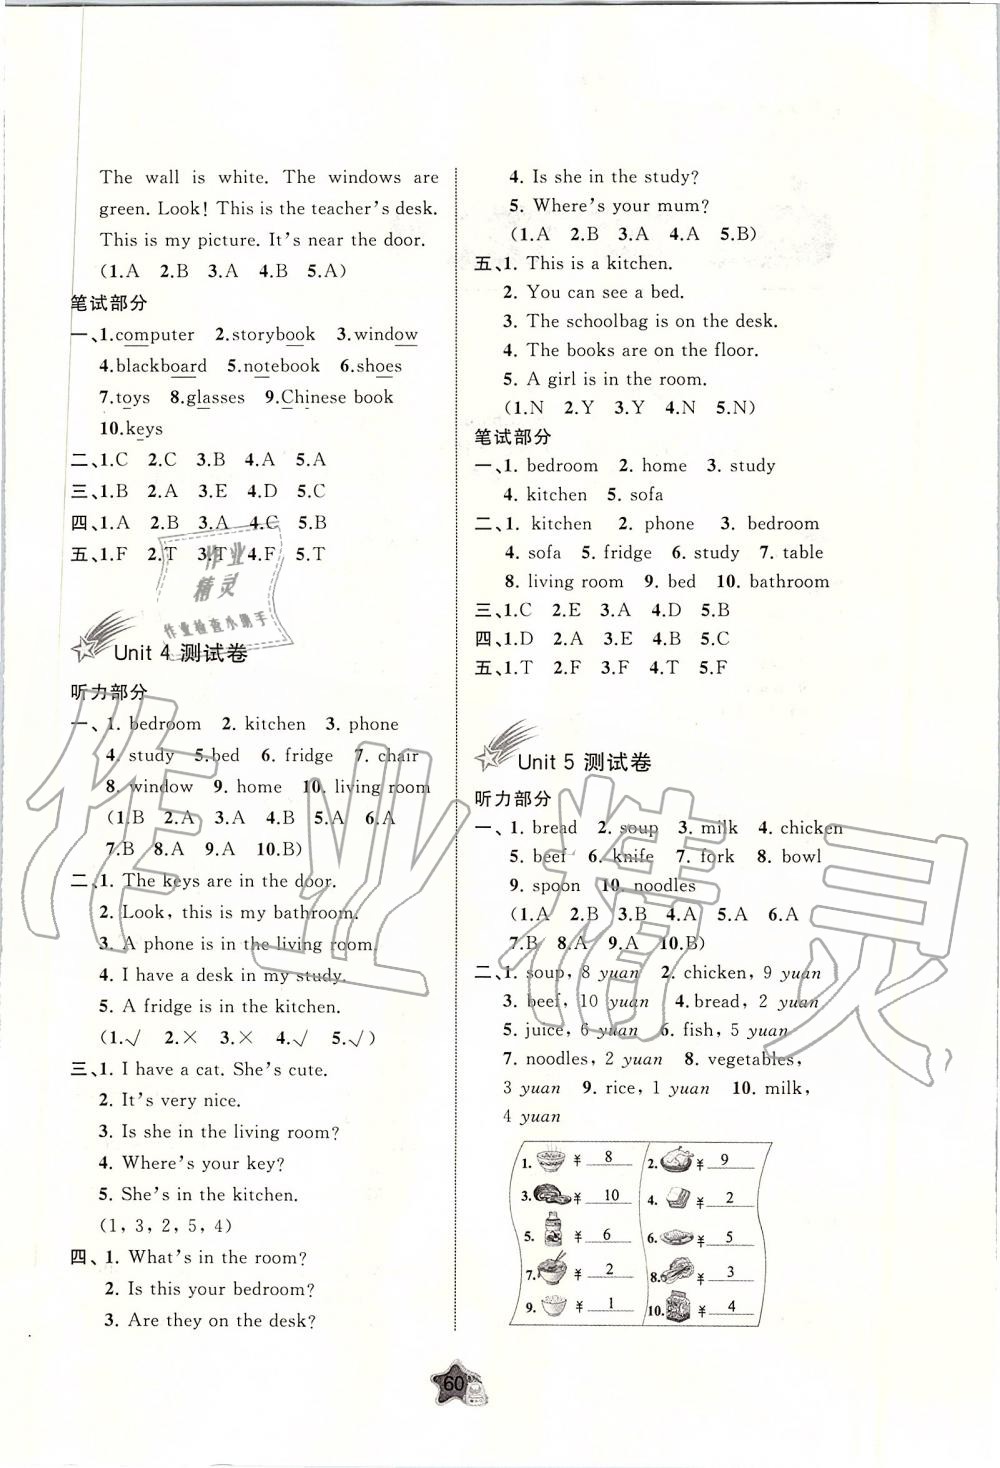 The wall is white. The windows are
green. Look! This is the teacher's desk.
This is my picture. It's near the door.
(1.A 2.B 3.A 4.B 5.A)
笔试部分
一、1.computer 2.storybook 3.window
4.blackboard 5.notebook 6.shoes
7.toys 8.glasses 9.Chinese book
10.keys
二、1.C 2.C 3.B 4.A 5.A
三、1.B 2.A 3.E 4.D 5.C
四、1.A 2.B 3.A 4.C 5.B
五、1.F 2.T 3.T 4.F 5.T
Unit 4 测试卷
听力部分
一、1. bedroom 2. kitchen 3. phone
4. study 5.bed 6. fridge 7. chair
8. window 9. home 10. living room
(1.B 2.A 3.A 4.B 5.A 6.A
7.B 8.A 9.A 10.B)
二、1. The keys are in the door.
2. Look, this is my bathroom.
3. A phone is in the living room.
4. I have a desk in my study.
5. A fridge is in the kitchen.
(1.√ 2.× 3.× 4.√ 5.√)
三、1. I have a cat. She's cute.
2. It's very nice.
3. Is she in the living room?
4. Where's your key?
5. She's in the kitchen.
(1, 3, 2, 5, 4)
四、1. What's in the room?
2. Is this your bedroom?
3. Are they on the desk?
4. Is she in the study?
5. Where's your mum?
(1.A 2.B 3.A 4.A 5.B)
五、1. This is a kitchen.
2. You can see a bed.
3. The schoolbag is on the desk.
4. The books are on the floor.
5. A girl is in the room.
(1.N 2.Y 3.Y 4.N 5.N)
笔试部分
一、1. bedroom 2. home 3. study
4. kitchen 5. sofa
二、1. kitchen 2. phone 3. bedroom
4. sofa 5. fridge 6. study 7. table
8. living room 9. bed 10. bathroom
三、1.C 2.E 3.A 4.D 5.B
四、1.D 2.A 3.E 4.B 5.C
五、1.T 2.F 3.F 4.T 5.F
Unit 5 测试卷
听力部分
一、1. bread 2. soup 3. milk 4. chicken
5. beef 6. knife 7. fork 8. bowl
9. spoon 10. noodles
(1.A 2.B 3.B 4.A 5.A 6.A
7.B 8.A 9.A 10.B)
二、1. soup, 8 yuan 2. chicken, 9 yuan
3. beef, 10 yuan 4.bread, 2 yuan
5. juice, 6 yuan 6. fish, 5 yuan
7. noodles, 2 yuan 8. vegetables,
3 yuan 9. rice, 1 yuan 10. milk,
4 yuan
1. ¥ 8 2. ¥ 9
3. ¥ 10 4. ¥ 2
5. ¥ 6 6. ¥ 5
7. ¥ 2 8. ¥ 3
9. ¥ 1 10. ¥ 4
60
作业
精灵
作业检查小助手
作业精灵